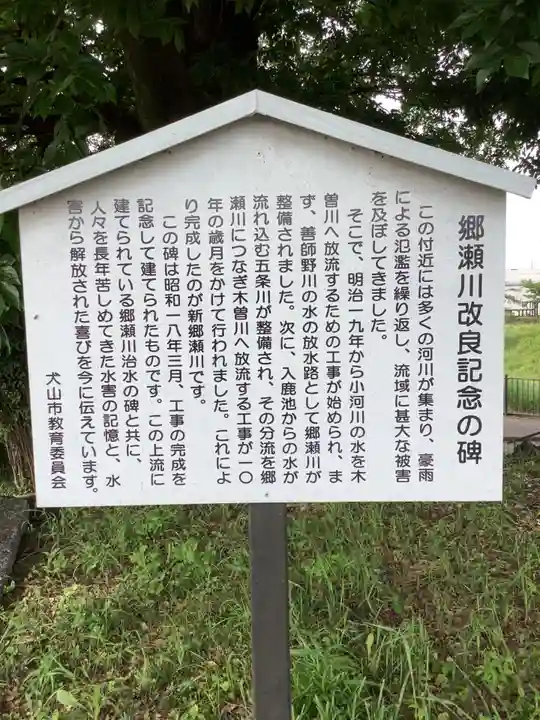 郷瀬川改良記念の碑
この付近には多くの河川が集まり、豪雨
による氾濫を繰り返し、流域に甚大な被害
を及ぼしてきました。
そこで、明治一九年から小河川の水を木
曽川へ放流するための工事が始められ、ま
ず、善師野川の水の放水路として郷瀬川が
整備されました。次に、入鹿池からの水が
流れ込む五条川が整備され、その分流を郷
瀬川につなぎ木曽川へ放流する工事が一〇
年の歳月をかけて行われました。これによ
り完成したのが新郷瀬川です。
この碑は昭和一八年三月、工事の完成を
記念して建てられたものです。この上流に
建てられている郷瀬川治水の碑と共に、
人々を長年苦しめてきた水害の記憶と、水
害から解放された喜びを今に伝えています。
犬山市教育委員会